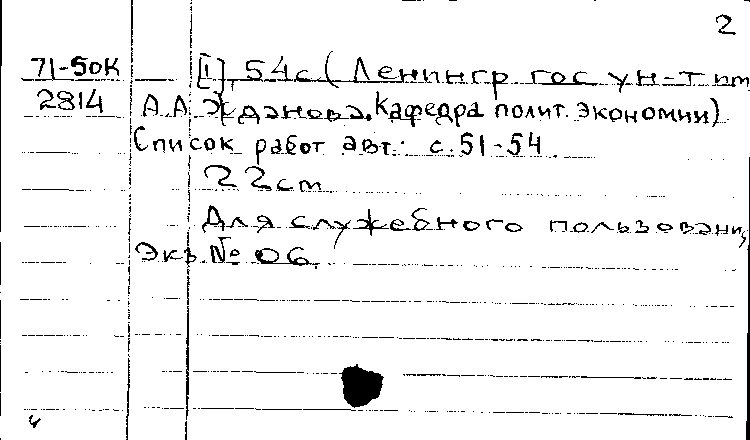 2
71-50К [I], 54с. (Ленингр гос ун-т им
2814 А.А Жданова. Кафедра полит. экономии)
Список работ авт.: с. 51-54.
22 cm
Для служебного пользования,
Экз. № 06.